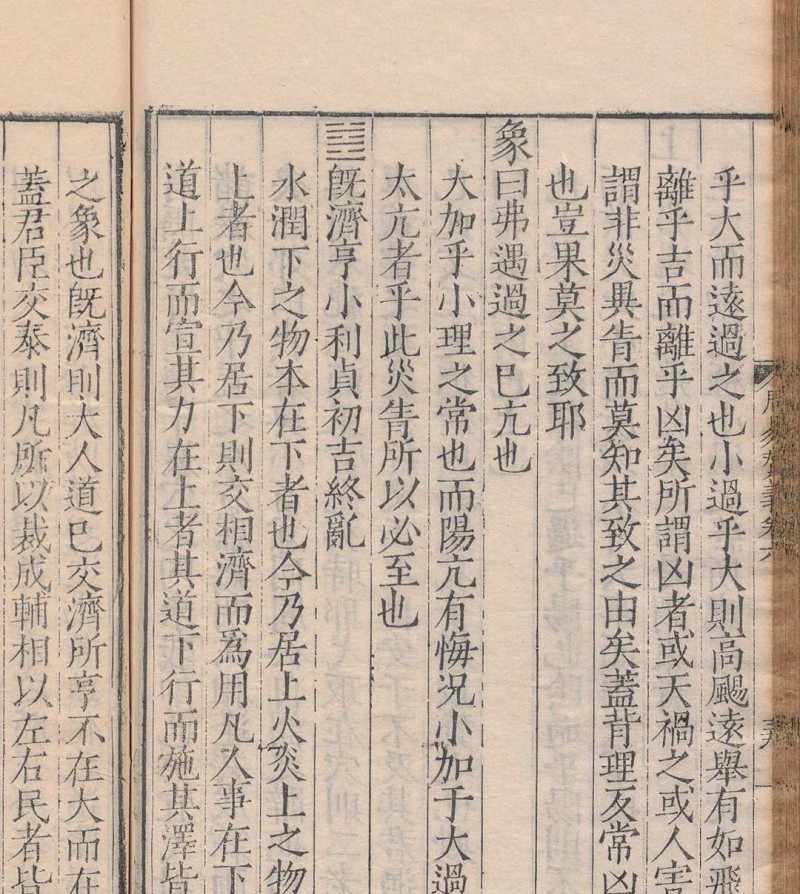 乎大而遠過之也小過乎大則高颺遠舉有如飛
離乎吉而離乎凶矣所謂凶者或天禍之或人害
謂非災異眚而莫知其致之由矣蓋背理反常凶
也豈果莫之致耶
象曰弗遇過之已亢也
大加乎小理之常也而陽亢有悔況小加于大過
太亢者乎此災眚所以必至也
䷾既濟亨小利貞初吉終亂
水潤下之物本在下者也今乃居上火炎上之物
上者也今乃居下則交相濟而爲用凡人事在下
道上行而宣其力在上者其道下行而施其澤皆
之象也既濟則大人道已交濟所亨不在大而在
蓋君臣交泰則凡所以裁成輔相以左右民者皆